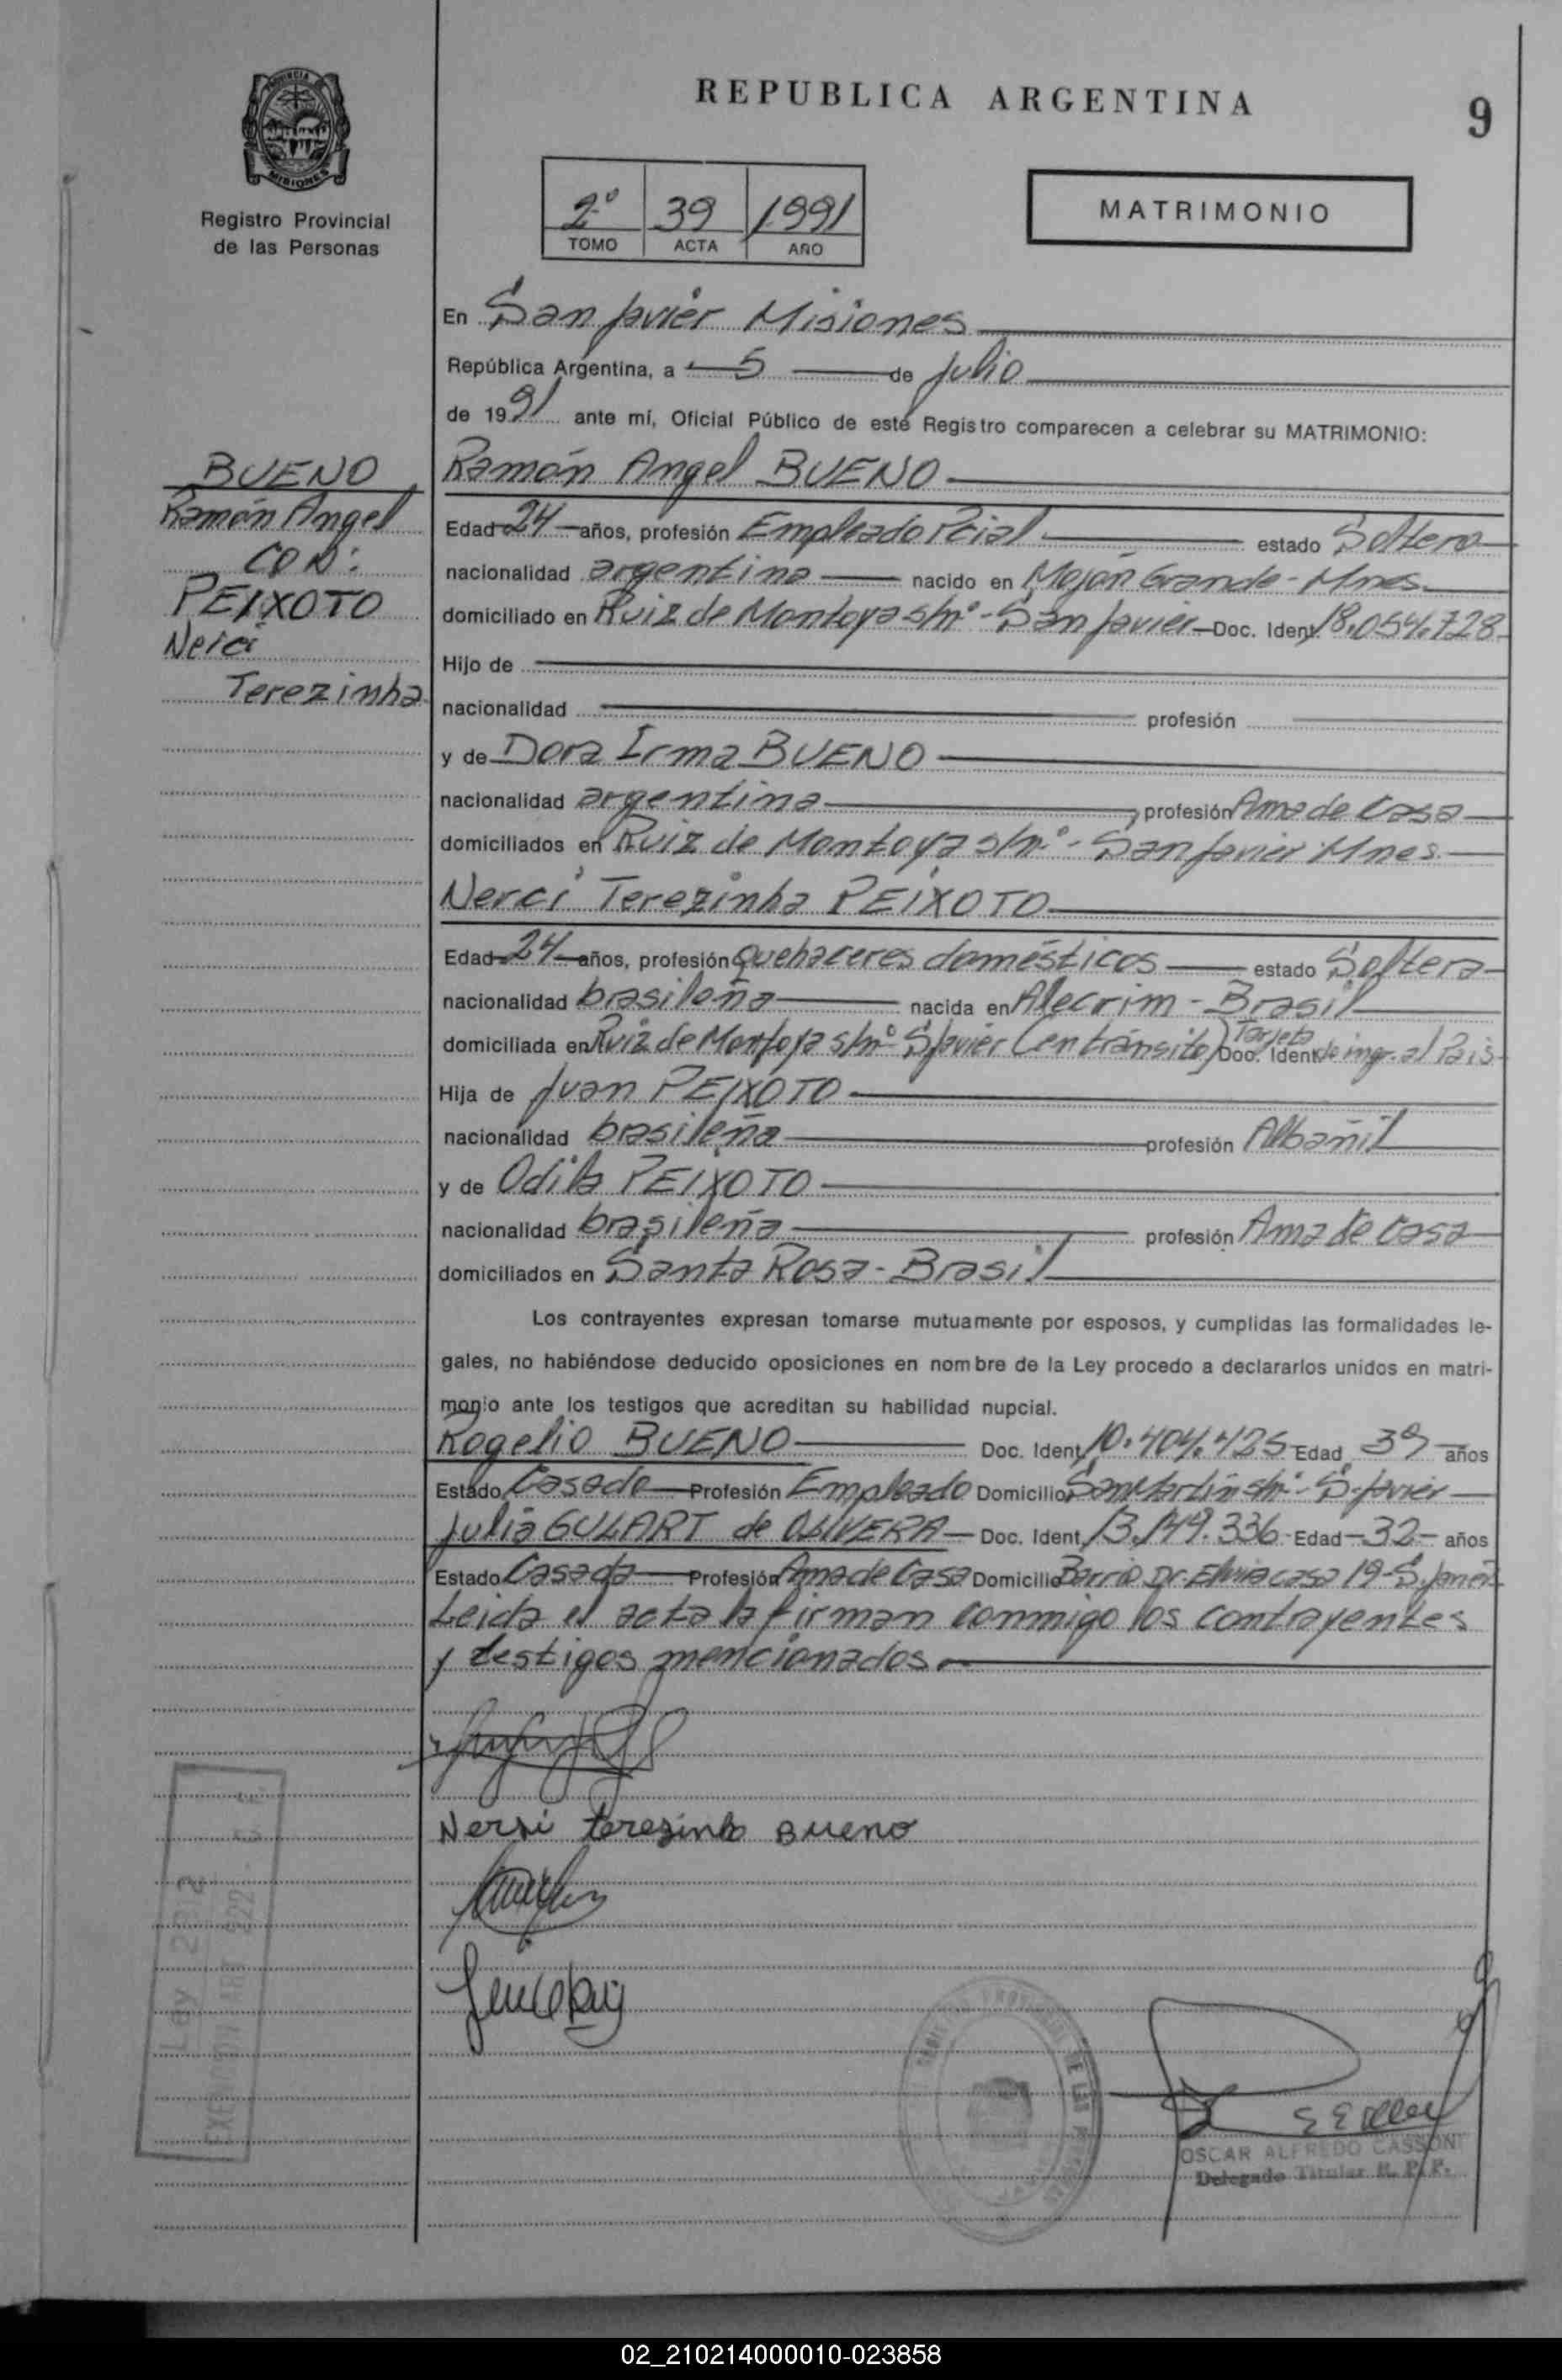 REPUBLICA ARGENTINA
9
PROVINCIA
MISIONES
Registro Provincial
de las Personas
2º 39 1991
TOMO ACTA AÑO
MATRIMONIO
En San Javier Misiones
República Argentina, a 5 de Julio
de 1991 ante mí, Oficial Público de este Registro comparecen a celebrar su MATRIMONIO:
BUENO
Ramón Angel
CON:
PEIXOTO
Nerci
Terezinha
Ramón Angel BUENO
Edad 24 años, profesión Empleado Pcial estado Soltero
nacionalidad argentina nacido en Mojón Grande - Mnes.
domiciliado en Ruiz de Montoya s/nº - San Javier Doc. Ident. 18.054.728
Hijo de
nacionalidad profesión
y de Dora Irma BUENO
nacionalidad argentina profesión Ama de Casa
domiciliados en Ruiz de Montoya s/nº - San Javier Mnes.
Nerci Terezinha PEIXOTO
Edad 24 años, profesión Quehaceres domésticos estado Soltera
nacionalidad brasileña nacida en Alecrim - Brasil
domiciliada en Ruiz de Montoya s/nº S.Javier (en tránsito) Doc. Ident. Tarjeta de ingr. al País
Hija de Juan PEIXOTO
nacionalidad brasileña profesión Albañil
y de Odila PEIXOTO
nacionalidad brasileña profesión Ama de Casa
domiciliados en Santa Rosa - Brasil
Los contrayentes expresan tomarse mutuamente por esposos, y cumplidas las formalidades le-
gales, no habiéndose deducido oposiciones en nombre de la Ley procedo a declararlos unidos en matri-
monio ante los testigos que acreditan su habilidad nupcial.
Rogelio BUENO Doc. Ident. 10.404.425 Edad 39 años
Estado Casado Profesión Empleado Domicilio San Martín s/nº - S.Javier
Julia GULART de OLIVERA Doc. Ident. 13.149.336 Edad 32 años
Estado Casada Profesión Ama de Casa Domicilio Barrio Dr. casa 19 - S.Javier
Leida el acta la firman conmigo los contrayentes
y testigos mencionados
Nersi teresinha Bueno
Ley
EXENCION ART
OSCAR ALFREDO CASSONI
Delegado Titular R. P. P.
02_210214000010-023858